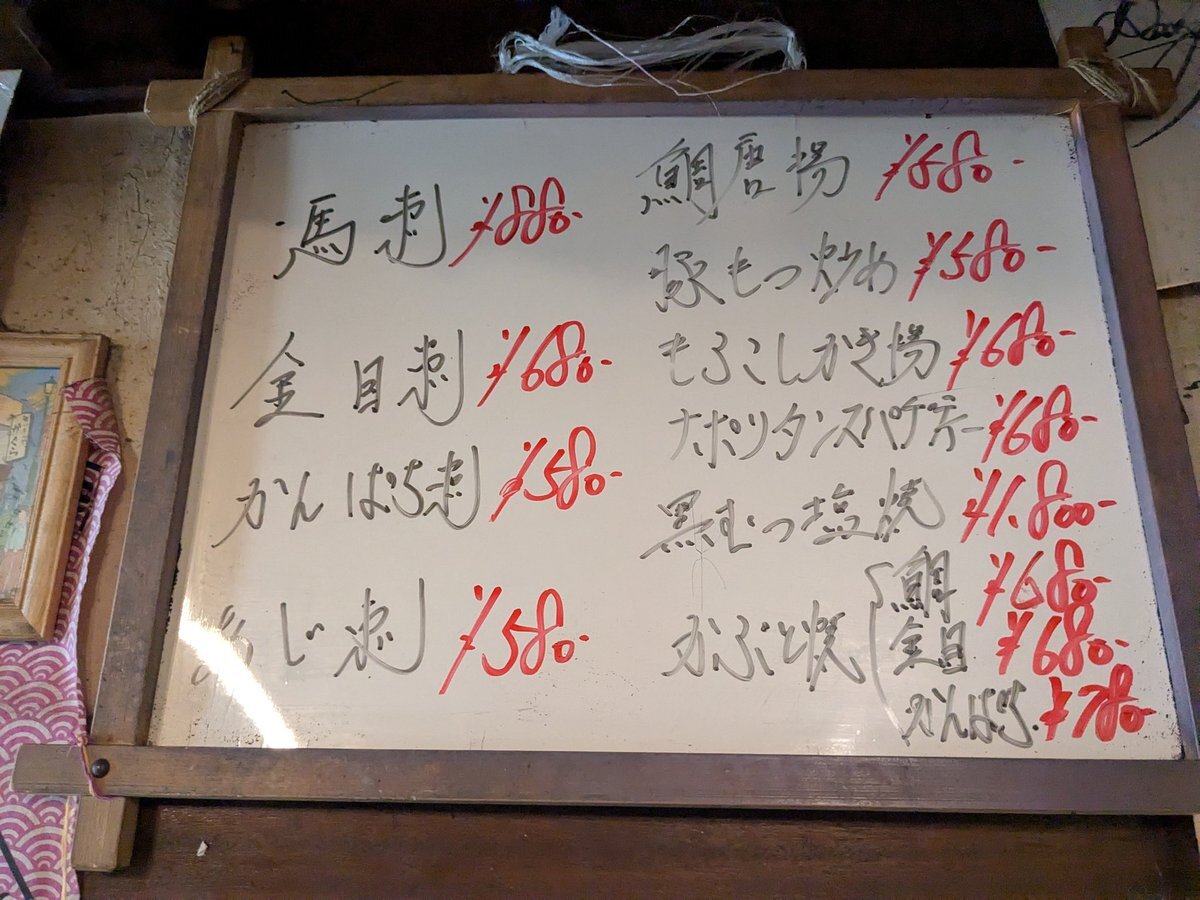 馬刺 ¥880-
金目刺 ¥680-
かんぱち刺 ¥580-
あじ刺 ¥580-
鯛唐揚 ¥580-
豚もつ炒め ¥580-
もろこしかき揚 ¥680-
ナポリタンスパゲティー ¥680-
黒むつ塩焼 ¥1.800-
かぶと焼 鯛 ¥680-
金目 ¥680-
かんぱち. ¥780-